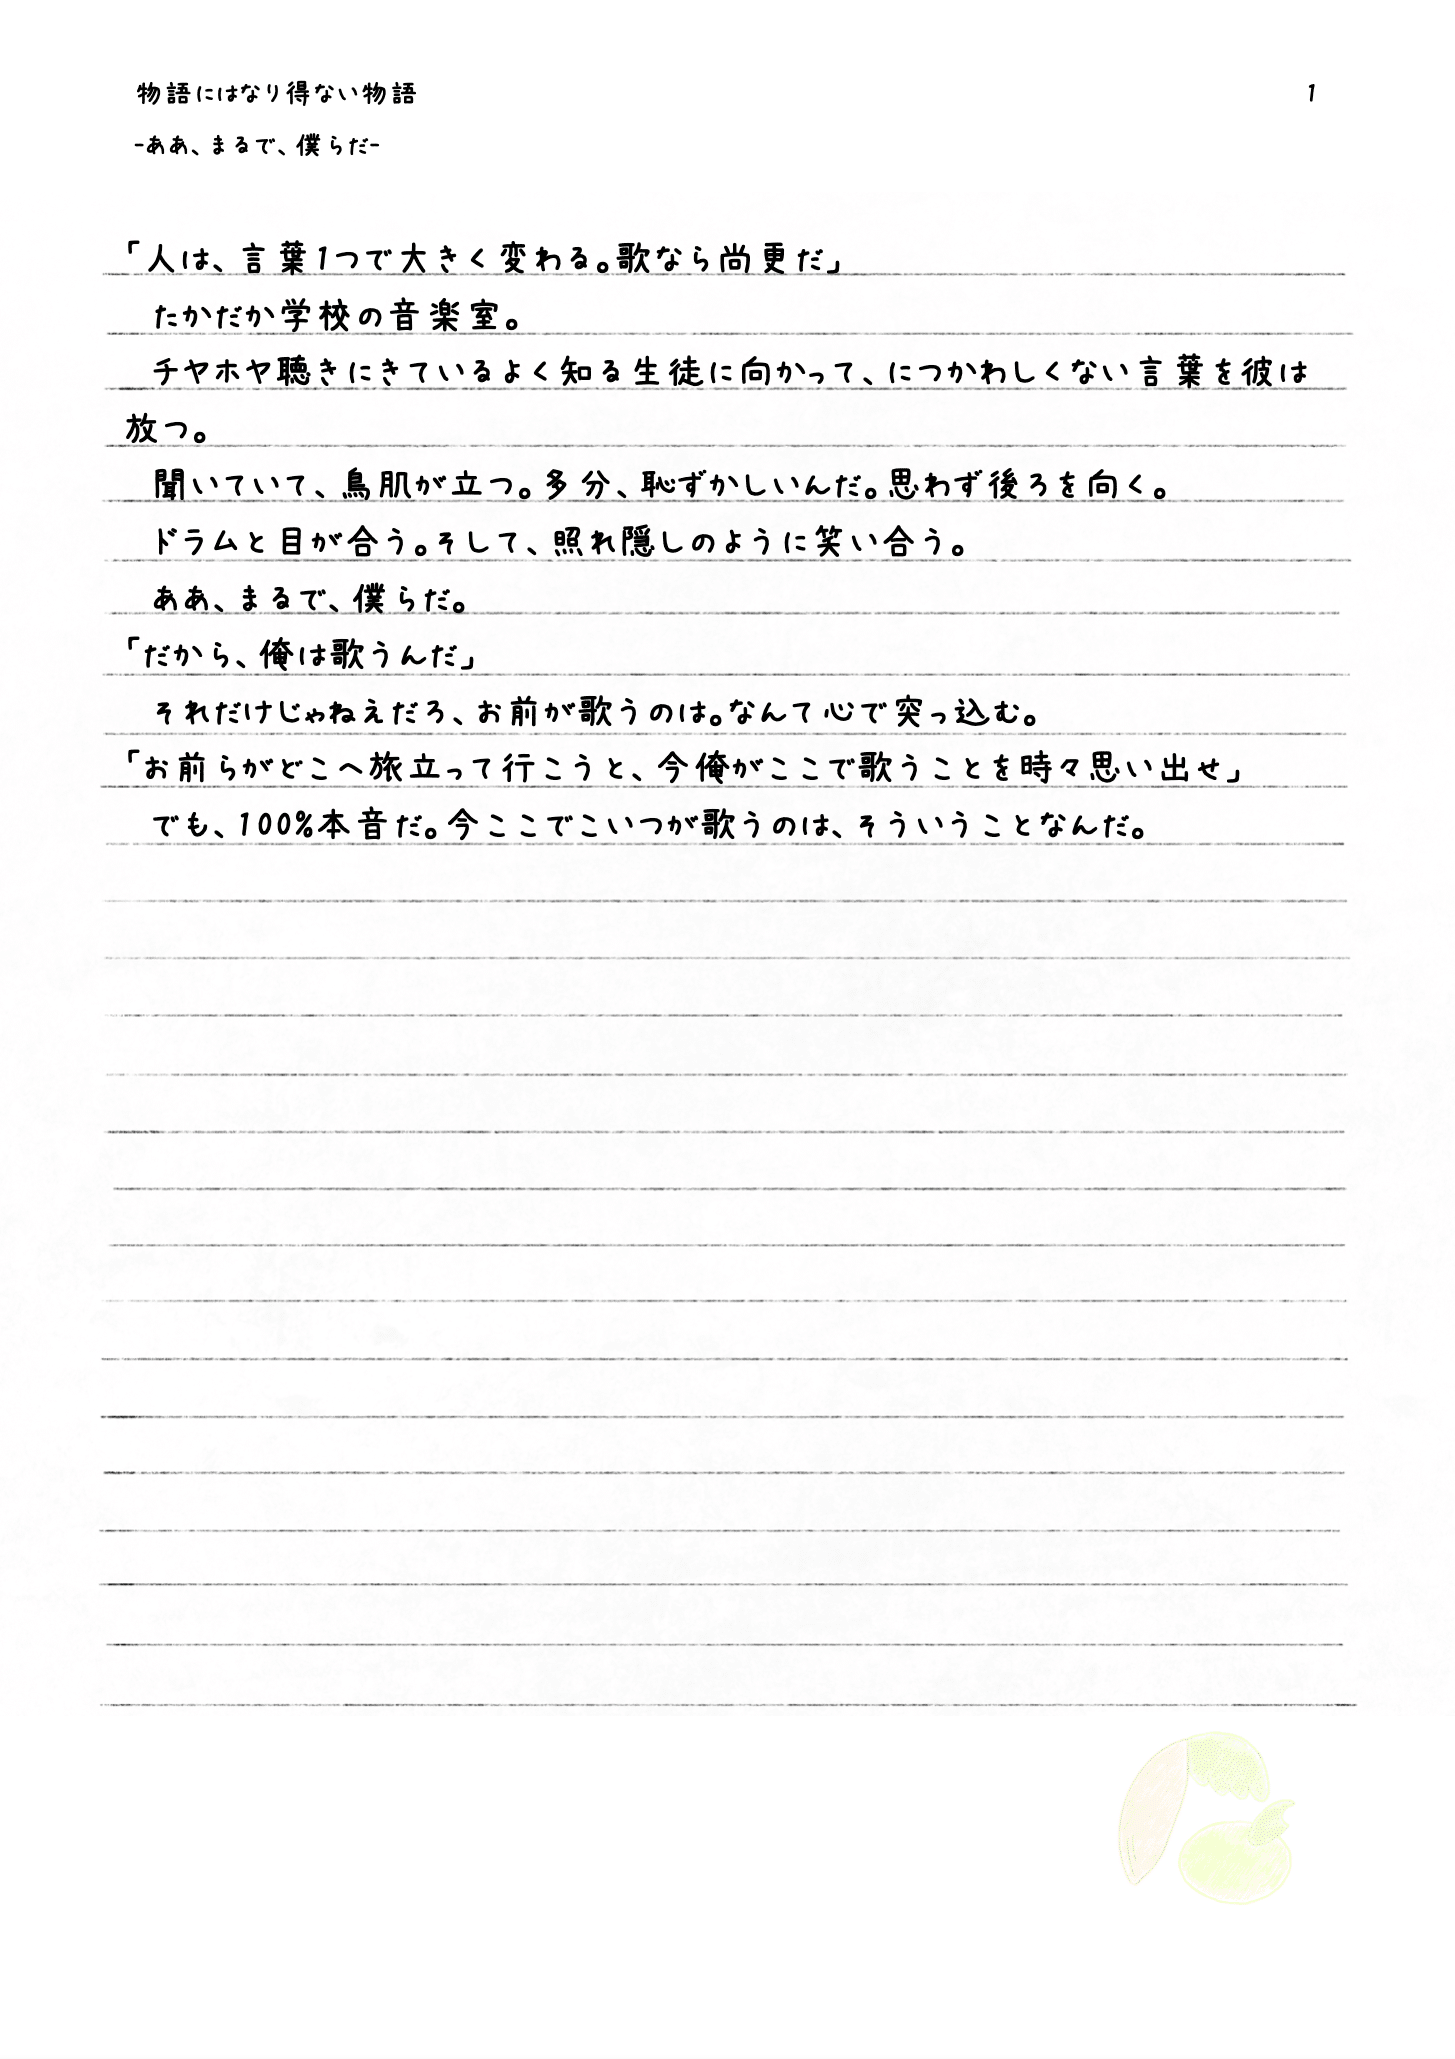 物語にはなり得ない物語
1
-ああ、まるで、僕らだ-
「人は、言葉1つで大きく変わる。歌なら尚更だ」
たかだか学校の音楽室。
チヤホヤ聴きにきているよく知る生徒に向かって、につかわしくない言葉を彼は
放つ。
聞いていて、鳥肌が立つ。多分、恥ずかしいんだ。思わず後ろを向く。
ドラムと目が合う。そして、照れ隠しのように笑い合う。
ああ、まるで、僕らだ。
「だから、俺は歌うんだ」
それだけじゃねえだろ、お前が歌うのは。なんて心で突っ込む。
「お前らがどこへ旅立って行こうと、今俺がここで歌うことを時々思い出せ」
でも、100%本音だ。今ここでこいつが歌うのは、そういうことなんだ。